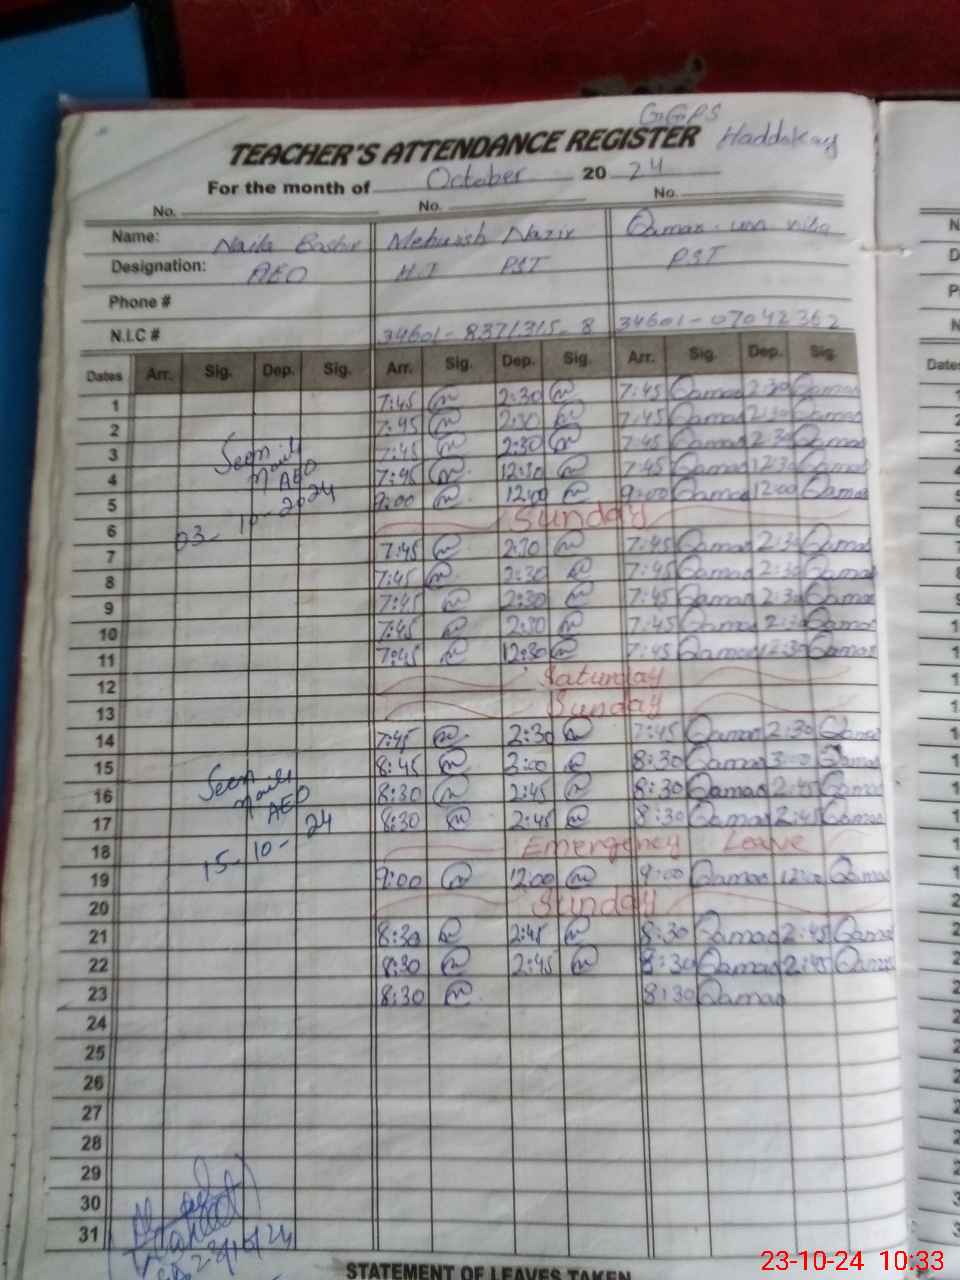 G.G.P.S
TEACHER'S ATTENDANCE REGISTER Haddokay
For the month of October 20 24
No. No. No.
Name: Naila Bashir Mehwish Nazir Qamar un nisa
Designation: AEO H.T PST PST
Phone #
N.I.C # 34601-8371315-8 34601-07042362
Dates Arr. Sig. Dep. Sig. Arr. Sig. Dep. Sig. Arr. Sig. Dep. Sig.
1 7:45 2:30 7:45 Qamar 2:30 Qamar
2 7:45 2:30 7:45 Qamar 2:30 Qamar
3 Seen 7:45 2:30 7:45 Qamar 2:30 Qamar
4 AEO 7:45 12:30 7:45 Qamar 12:30 Qamar
5 03-10-2024 9:00 12:00 9:00 Qamar 12:00 Qamar
6 Sunday
7 7:45 2:30 7:45 Qamar 2:30 Qamar
8 7:45 2:30 7:45 Qamar 2:30 Qamar
9 7:45 2:30 7:45 Qamar 2:30 Qamar
10 7:45 2:30 7:45 Qamar 2:30 Qamar
11 7:45 12:30 7:45 Qamar 12:30 Qamar
12 Saturday
13 Sunday
14 7:45 2:30 7:45 Qamar 2:30 Qamar
15 Seen 8:45 3:00 8:30 Qamar 3:00 Qamar
16 AEO 8:30 2:45 8:30 Qamar 2:45 Qamar
17 8:30 2:45 8:30 Qamar 2:45 Qamar
18 15-10-24 Emergency Leave
19 9:00 12:00 9:00 Qamar 12:00 Qamar
20 Sunday
21 8:30 2:45 8:30 Qamar 2:45 Qamar
22 8:30 2:45 8:30 Qamar 2:45 Qamar
23 8:30 8:30 Qamar
24
25
26
27
28
29
30
31
23/10/24
STATEMENT OF LEAVES TAKEN
23-10-24 10:33